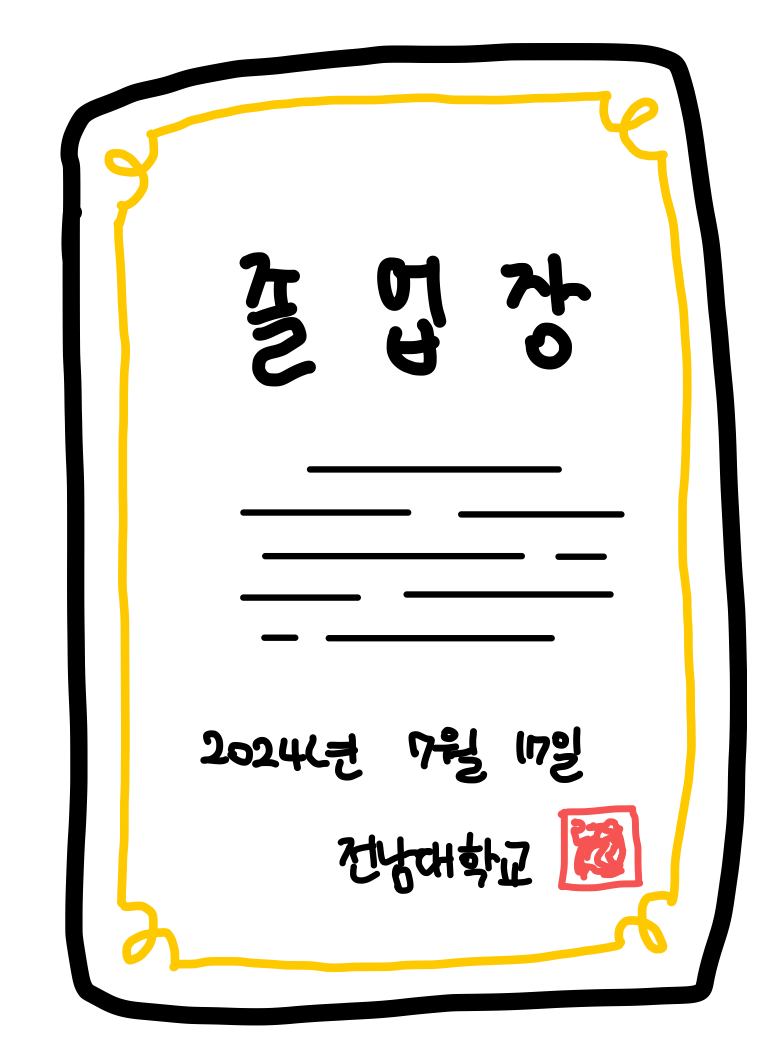 졸업장
2024년 7월 17일
전남대학교